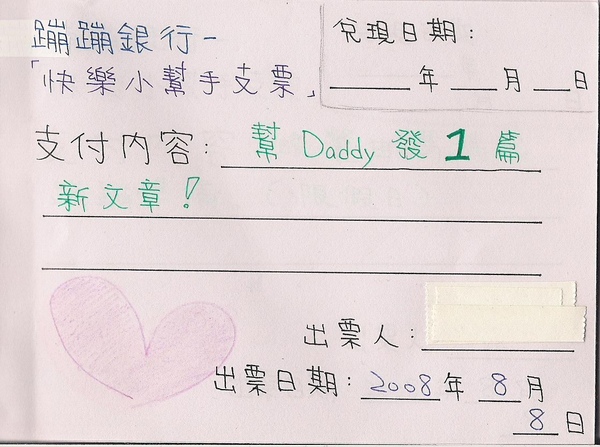 蹦蹦銀行-
「快樂小幫手支票」
兌現日期:
____年___月___日
支付內容: 幫 Daddy 發 1 篇
新文章!
出票人:
出票日期: 2008年 8月
8日